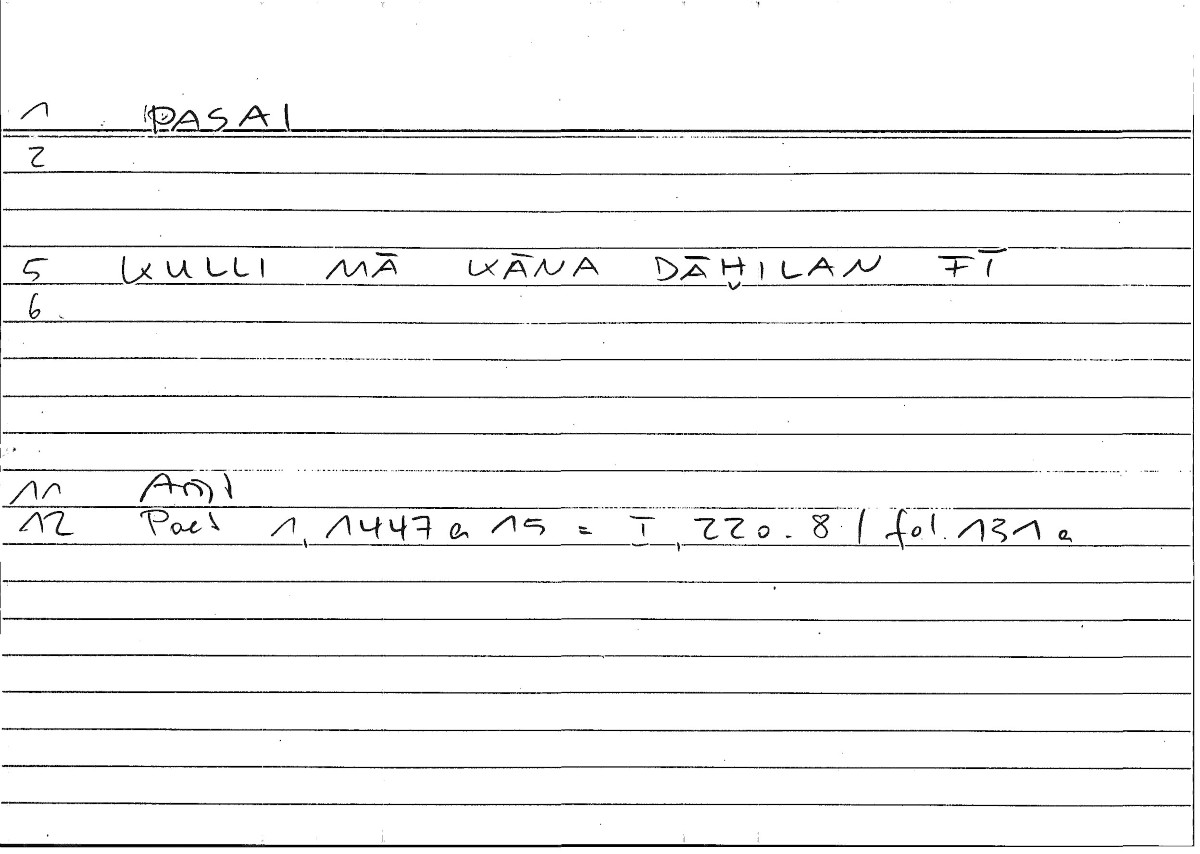 1 PASAI
2
5 KULLI MĀ KĀNA DĀḪILAN FĪ
6
11
12 Poet 1, 1447 a 15 = I, 220.8 / fol. 131 a